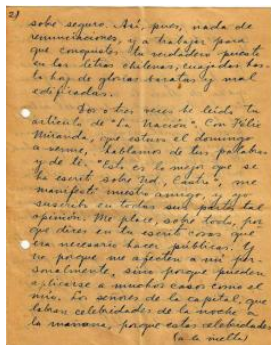 2)
sobre seguro. Así, pues, nada de
renunciaciones, y a trabajar para
que conquistes tu verdadero puesto
en las letras chilenas, cuajadas has-
ta hoy de glorias baratas y mal
edificadas.
Dos o tres veces he leído tu
artículo de "La Nación". Con Félix
Miranda, que estuvo el domingo
a verme, hablamos de tus
y de ti. "Esto es lo mejor que se
ha escrito sobre", me
manifestó nuestro amigo, y yo
suscribo en todas sus partes tal
opinión. Me place, sobre todo, por
que dices en tu escrito cosas que
era necesario hacer públicas. Y
no porque me afecten a mí per-
sonalmente, sino porque pueden
aplicarse a muchos casos como el
mío. Los señores de la capital, que
labran celebridades de la noche a
la mañana, porque estas celebridades
(a la vuelta)